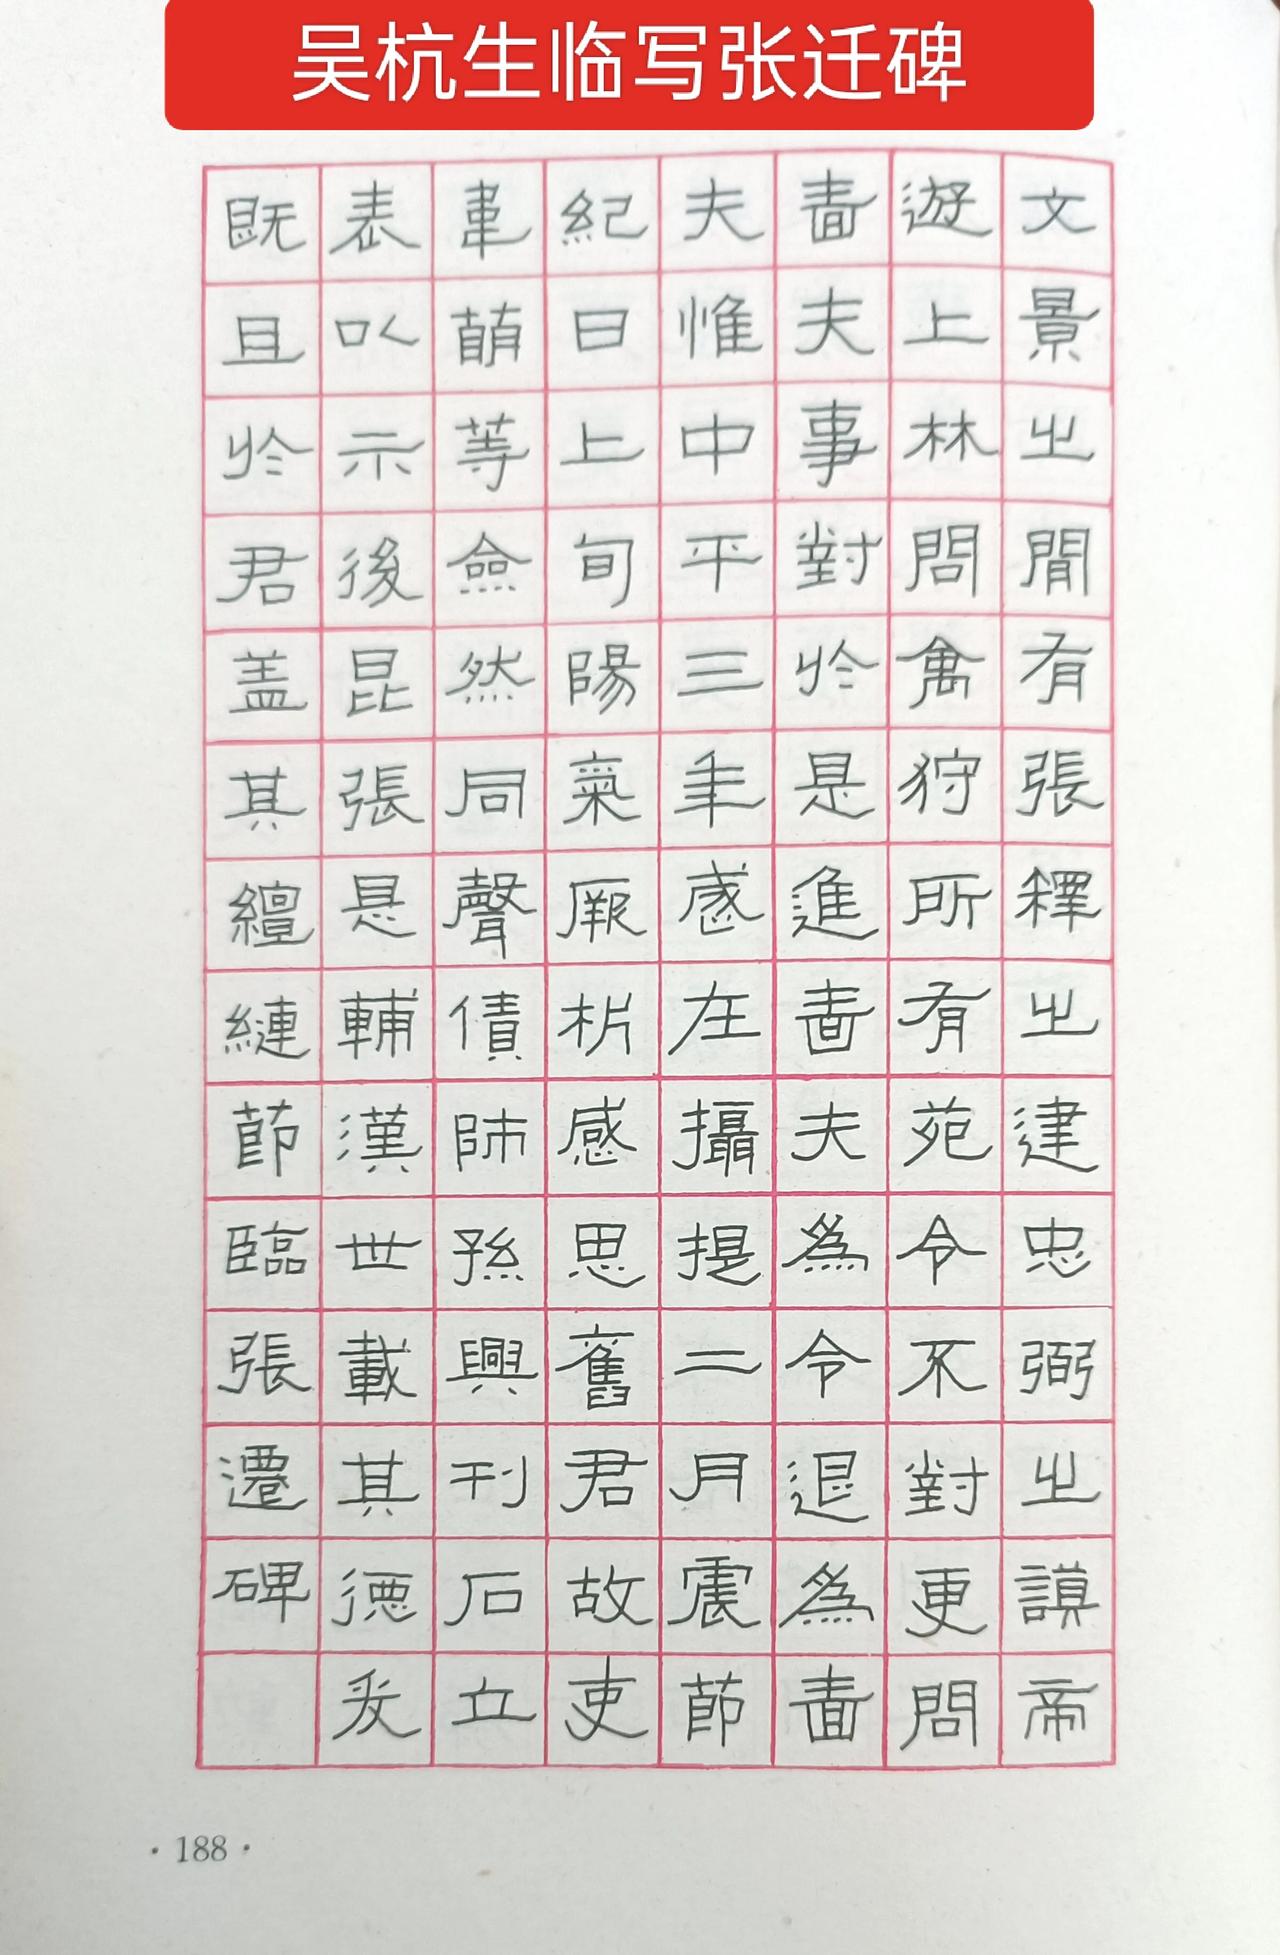 吴杭生临写张迁碑
文景之閒有張釋之建忠弼之謨帝
遊上林問禽狩所有苑令不對更問
嗇夫事對於是進嗇夫為令退為嗇
夫惟中平三年歲在攝提二月震節
紀日上旬陽氣厥析感思舊君故吏
韋萌等僉然同聲債師孫興刊石立
表以示後昆張是輔漢世載其德爰
既且於君盖其繵縺節臨張遷碑
·188·